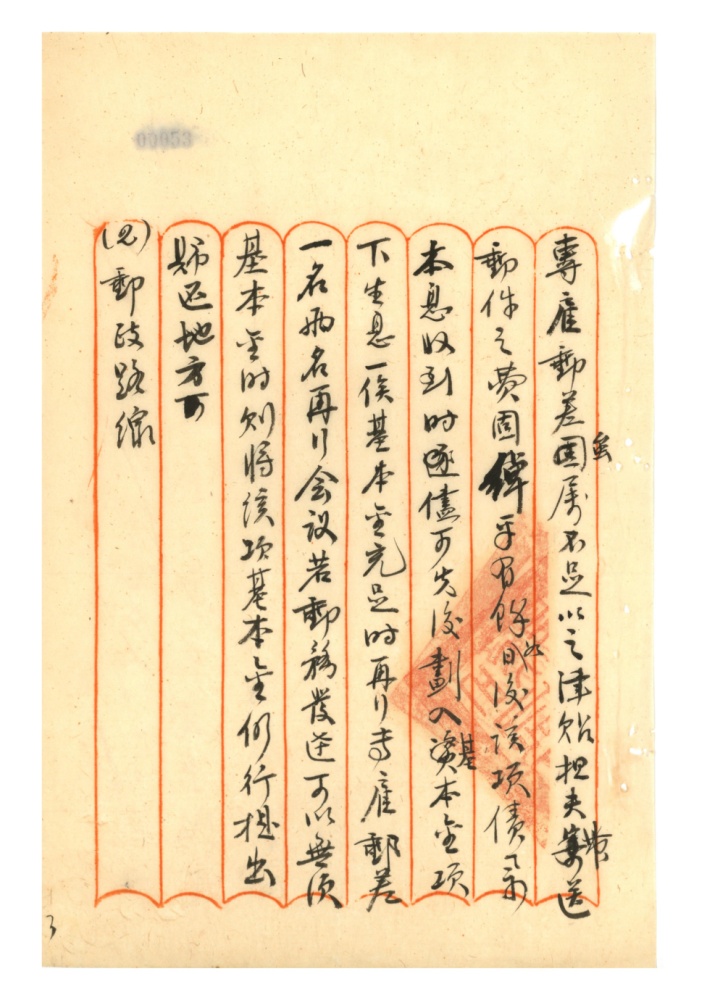 00053
專雇郵差固屬不足以之津貼担夫帶送
郵件之費固綽乎有餘如日後該項債票
本息收到時逐儘可先後劃入基本金項
下生息一俟基本金充足時再行專雇郵差
一名兩名再行会議若郵務發達可以無須
基本金時則將該項基本金仍行提出
歸还地方可
郵政路線
3